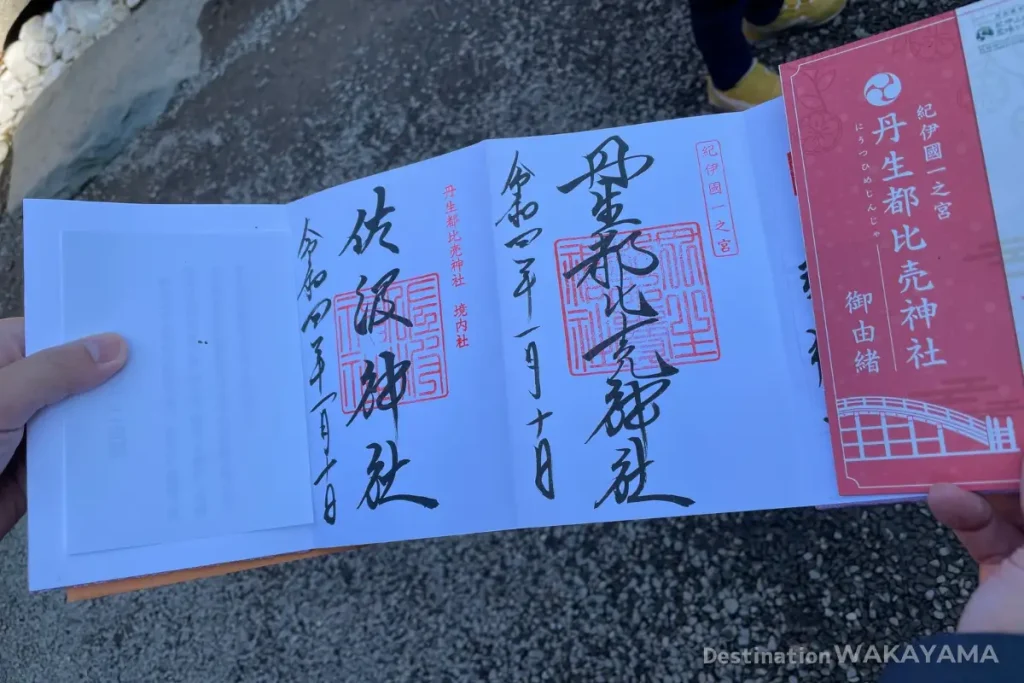 紀伊國一之宮
丹生都比売神社
にうつひめじんじゃ
御由緒
紀伊國一之宮
丹生都比売神社
令和四年一月十日
丹生都比売神社 境内社
佐波神社
令和四年一月十日
Destination WAKAYAMA